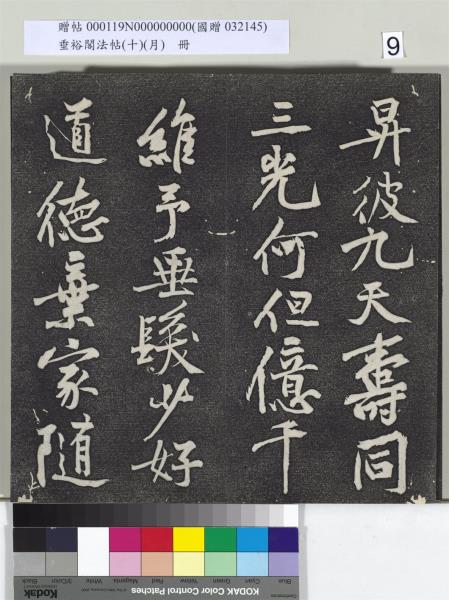 贈帖 000119N000000000(國贈 032145)
垂裕閣法帖(十)(月) 冊
9
昇彼九天壽同
三光何但億千
維予垂髫少好
道德棄家隨
Blue
Cyan
Green
Yellow
Red
Magenta
White
3/Color
Black
Kodak
KODAK Color Control Patches